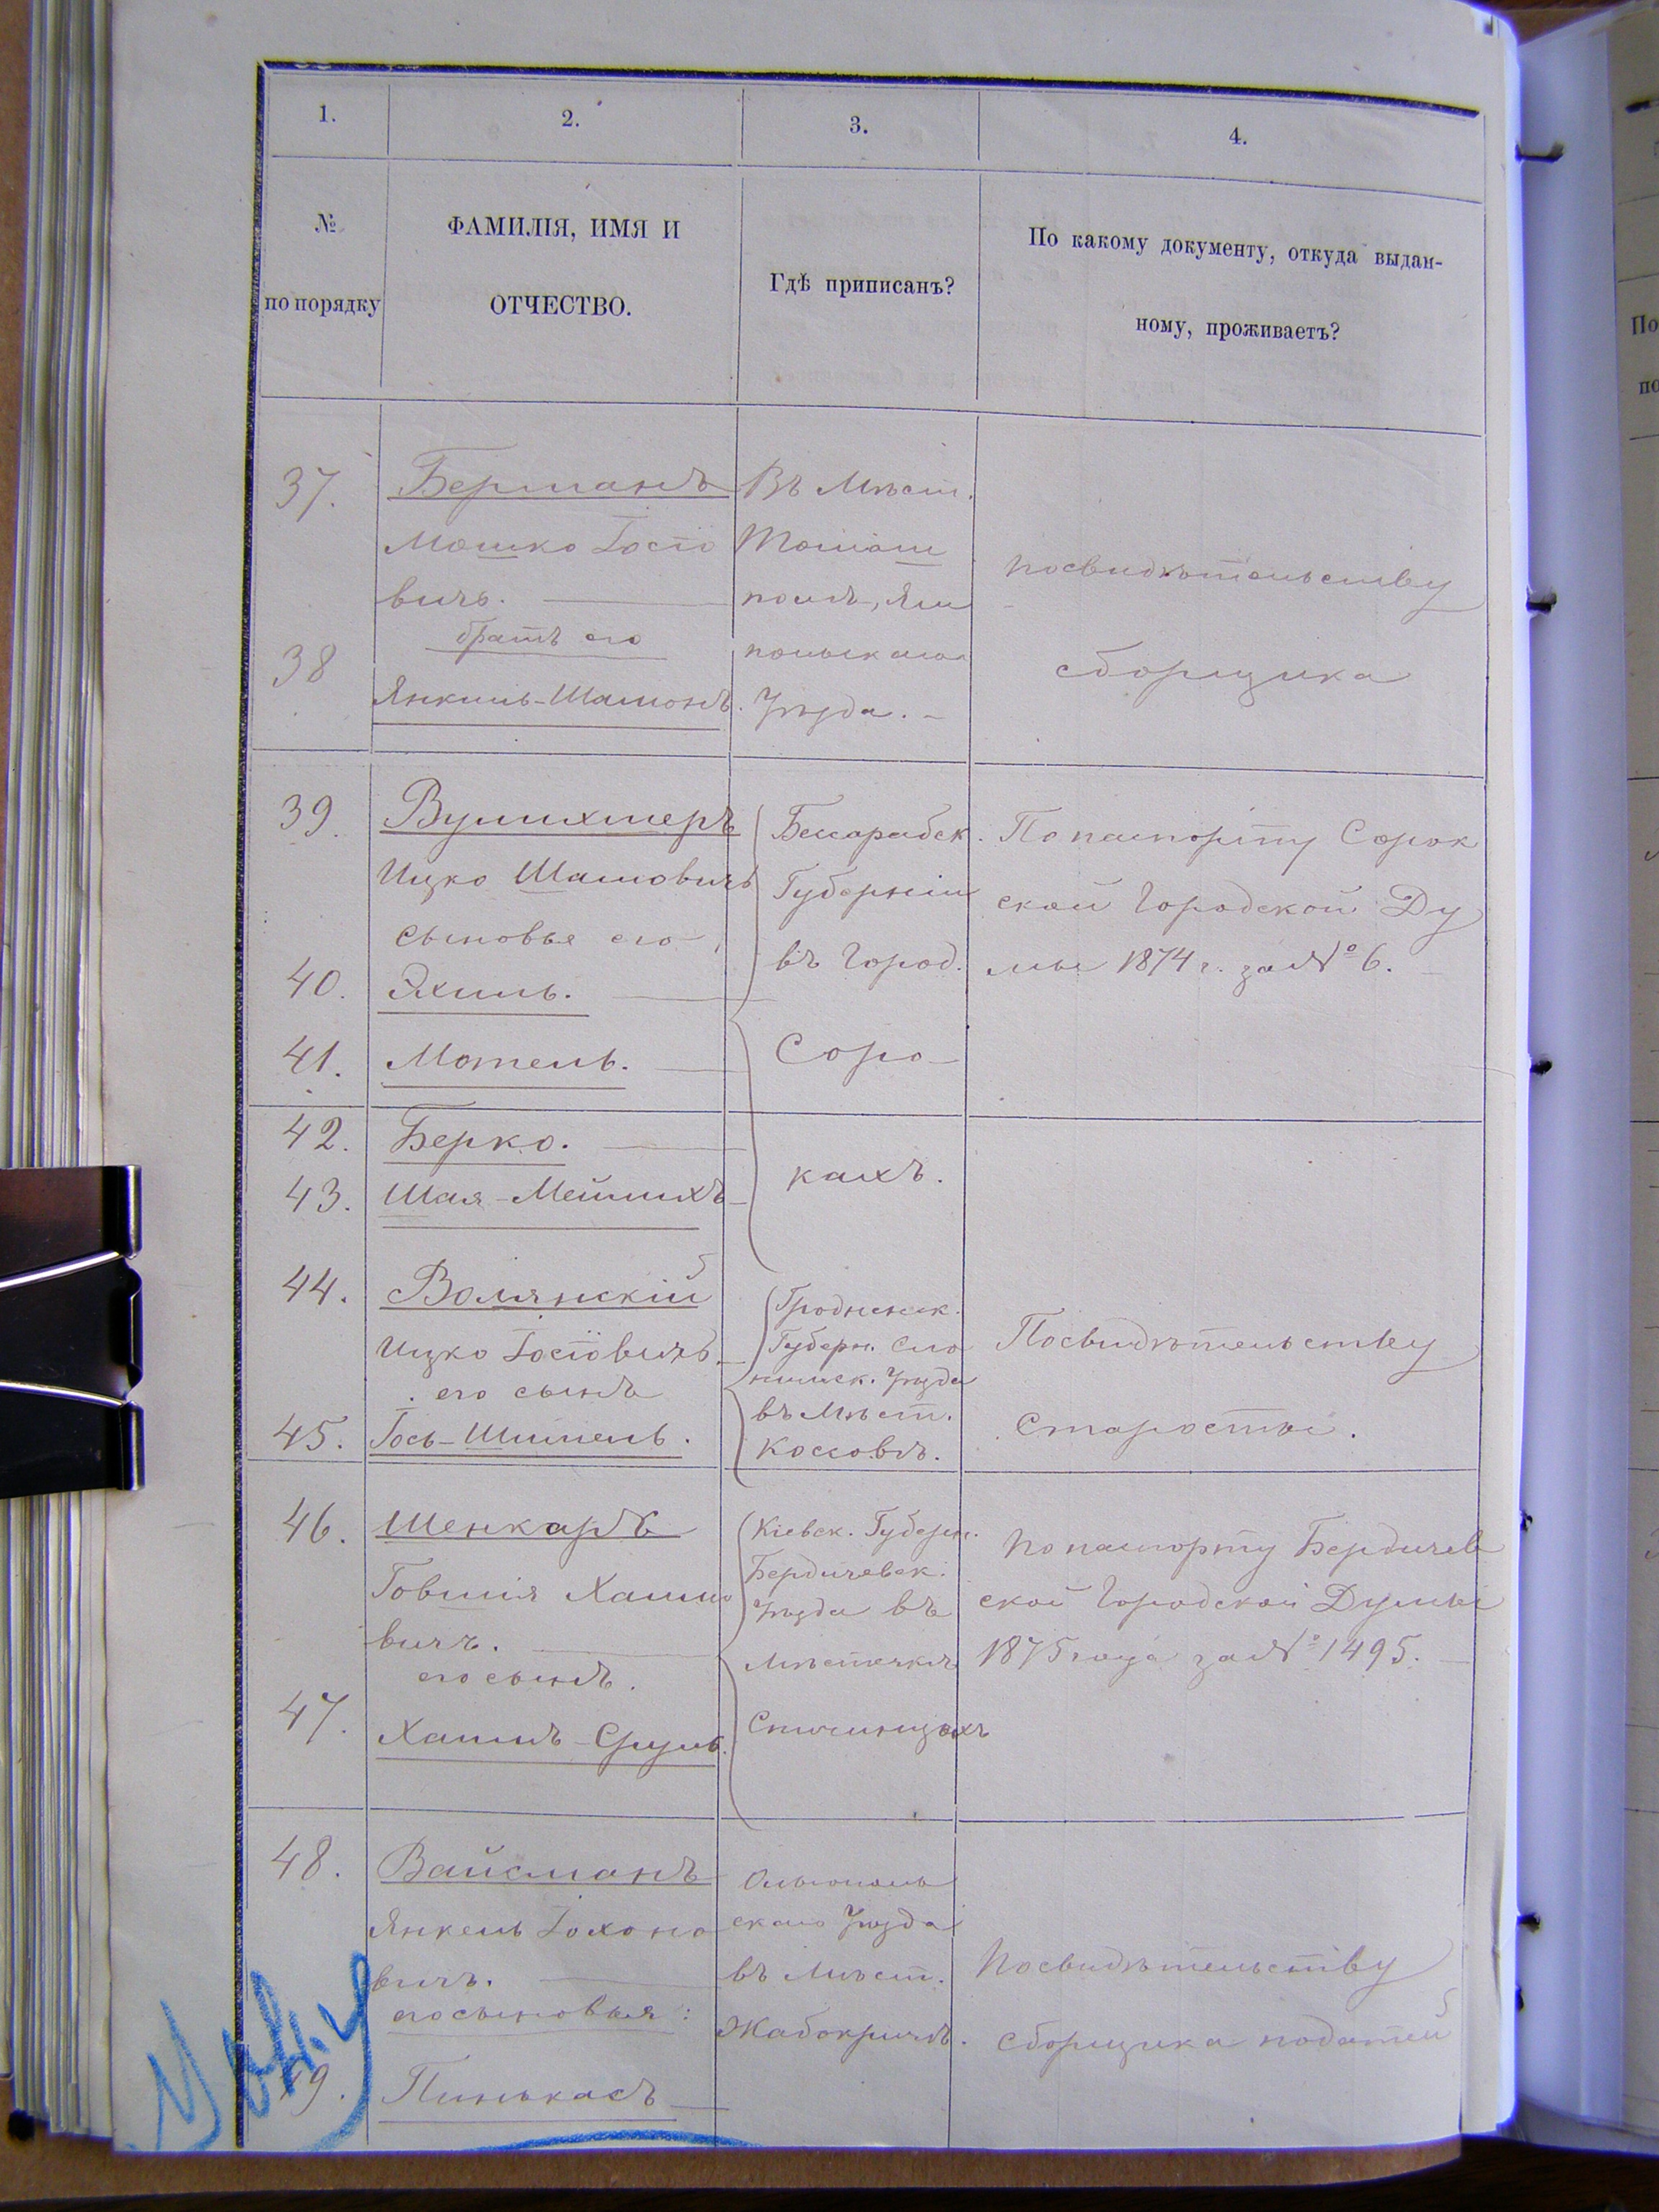 1.
2.
3.
4.
№ по порядку
ФАМИЛІЯ, ИМЯ И
ОТЧЕСТВО.
Гдѣ приписанъ?
По какому документу, откуда выдан-
ному, проживаетъ?
37.
Берманъ
Мошко Іосіо
вичъ.
38
братъ его
Янкиль-Шамонъ.
Въ Мѣст.
Томаш
полѣ, Ям
польскаго
Уѣзда.
по свидѣтельству
сборщика
39.
Вулихмеръ
Ицко Шамовичъ
сыновья его
40.
Эхиль.
41.
Мотель.
42.
Берко.
43.
Шая-Мейлихъ
Бессарабск.
Губерніи
въ Город.
Соро-
кахъ.
По паспорту Сорок
ской Городской Ду
мы 1874 г. за № 6.
44.
Волянскій
Ицко Іосіовичъ.
его сынъ
45.
Іось-Шмиель.
Гродненск.
Губерн. Сло
нимск. Уѣзда
въ Мѣст.
Коссовѣ.
По свидѣтельству
Старосты.
46.
Шенкаръ
Говшія Хаимо
вичъ.
его сынъ.
47.
Хаимъ-Сруль.
Кіевск. Губерн.
Бердичевск.
Уѣзда въ
Мѣстечкѣ
Спичинцахъ
По паспорту Бердичев
ской Городской Думы
1875 года за № 1495.
48.
Вайсманъ
Янкель Іохоно
вичъ.
его сыновья:
49.
Пинькасъ
Ольгополь
скаго Уѣзда
въ Мѣст.
Жабокричѣ.
По свидѣтельству
сборщика податей